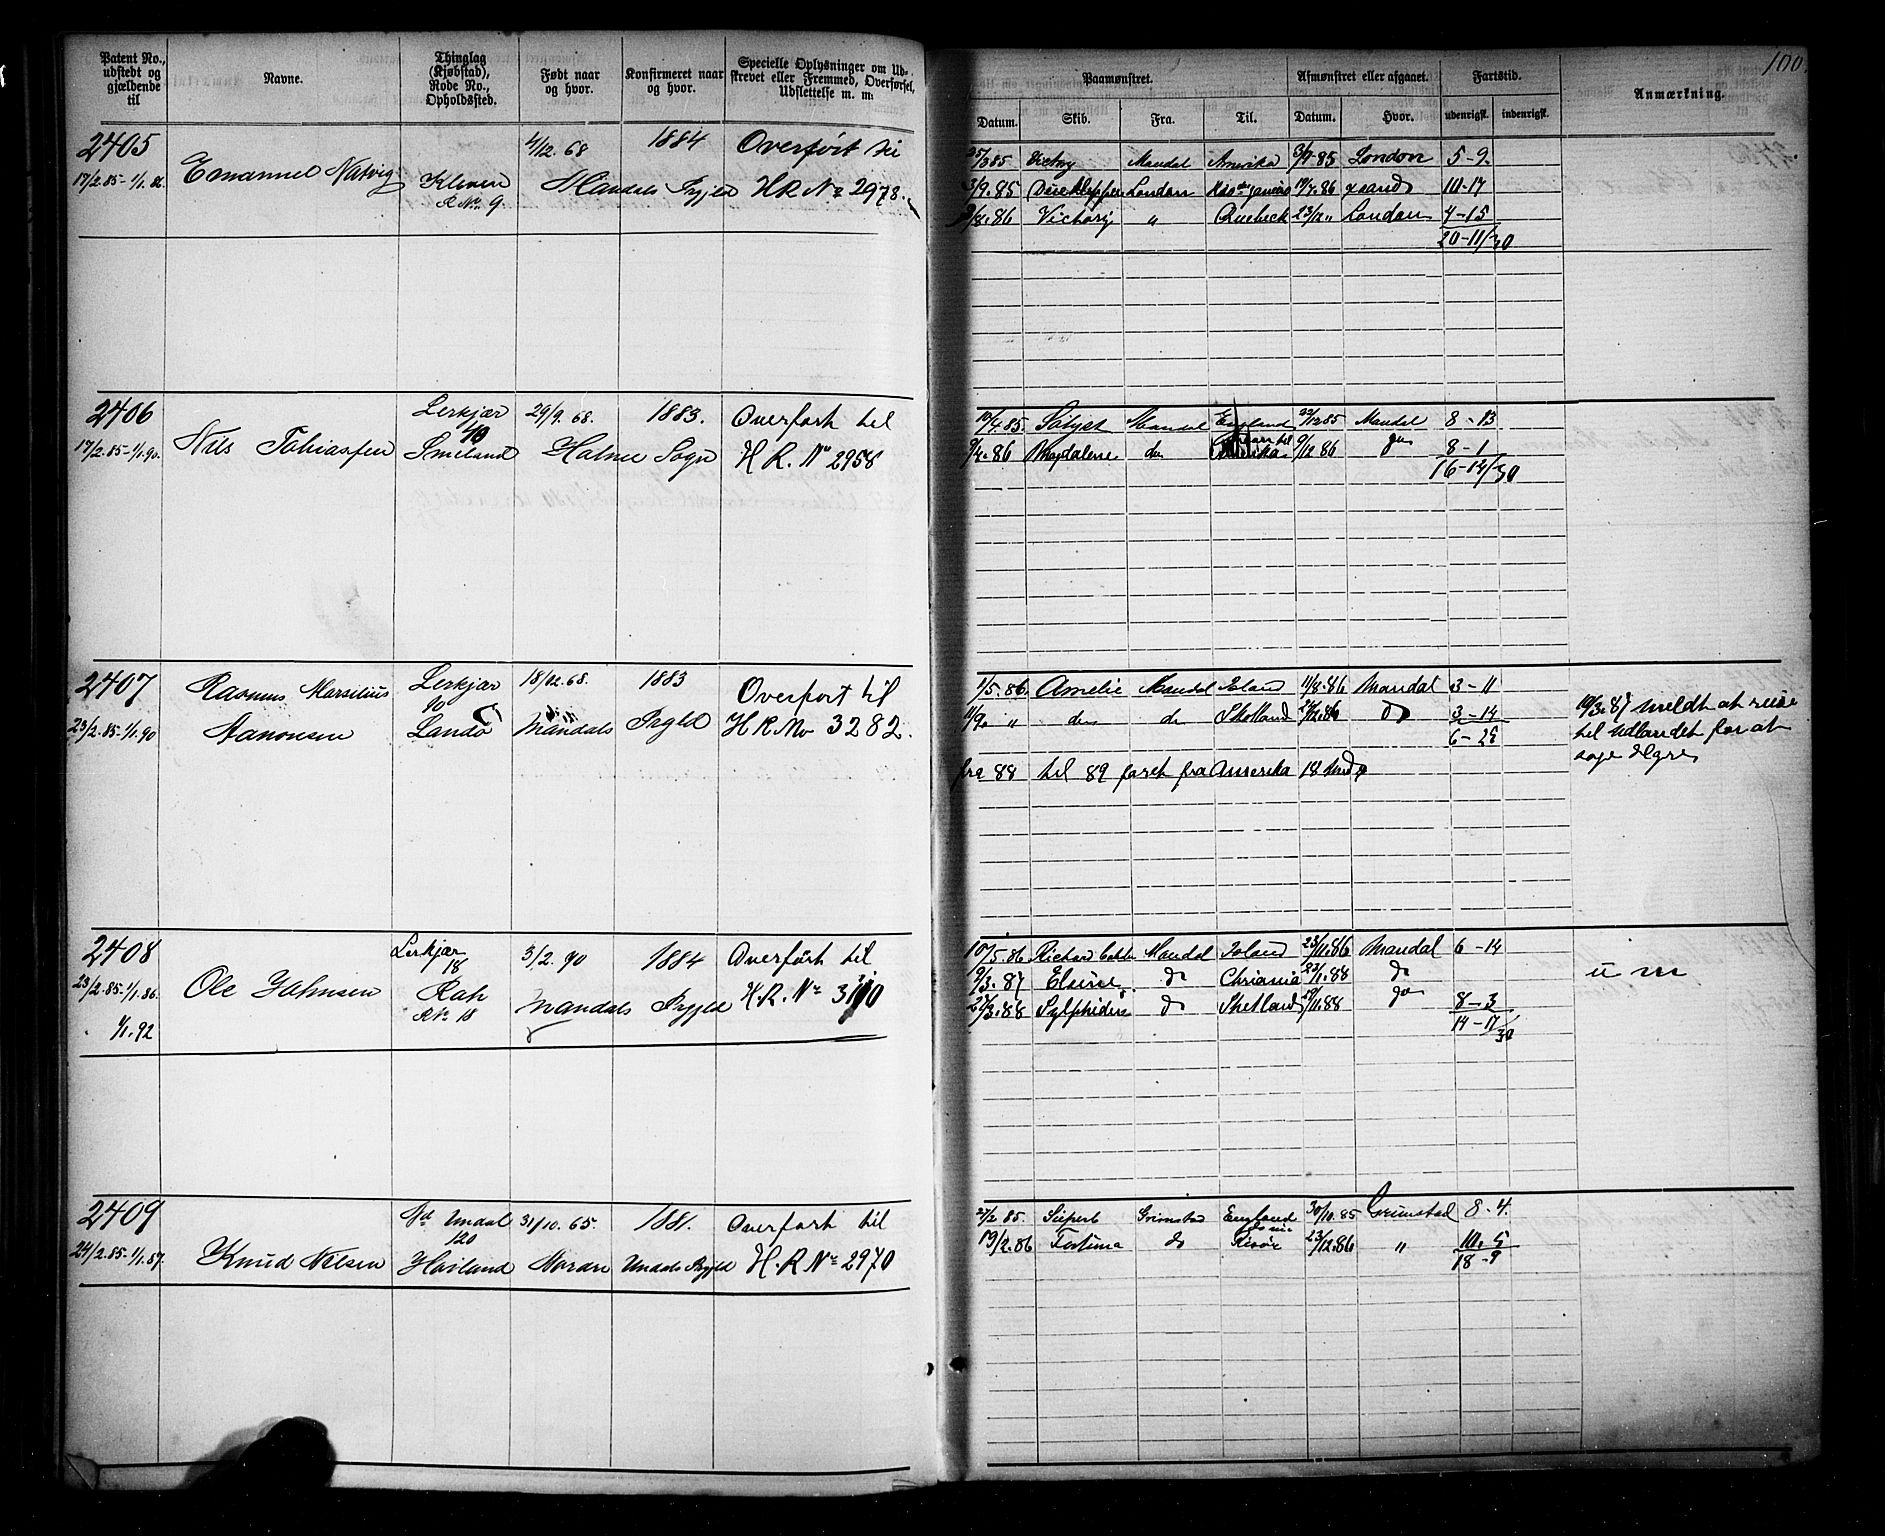 100.
Patent No., udstedt og gjældende til
Navne.
Thinglag (Kjøbstad), Rode No., Opholdssted.
Født naar og hvor.
Konfirmeret naar og hvor.
Specielle Oplysninger om Udskrevet eller Fremmed, Overførsel, Udslettelse m. m.
Paamønstret.
Afmønstret eller afgaaet.
Fartstid.
Anmærkning.
Datum. Skib. Fra. Til. Datum. Hvor. udenrigsk. indenrigsk.
2405
17/2.85-1/1.86.
Emanuel Natvig
Kleven
R No. 9
4/12.68
Mandals
1884
Prgjld
Overført til
H R No 2978.
25/3 85 Victory Mandal Amerika 3/9.85 London 5-9.
3/9.85 London 86
86 Victory " Quebeck 23/12 " London 4-15
20-11/30
2406
17/2.85-1/1.90.
Nils Tobiassen
Lerkjær
Smeland
29/9.68.
Halse
1883.
Sogn
Overført til
H R. No 2958
85. Mandal England 85 Mandal 8-13
86 Magdalene do Amerika 9/12 86 do 8-1
16-14/30
2407
23/2.85-1/1.90
Rasmus Marselius
Aanonsen
Lerkjær
90
Landø
18/12.68.
Mandals
1883
Prgld
Overført til
H R No 3282.
1/5.86. Amelie Mandal 11/8.86 Mandal 3-11
11/9. " do do Skotland 86 do 3-14
6-25
fra 88 til 89 faret fra Amerika 18 Mdr
19/3.87 meldt at reise
til Udlandet for at
søge Hyre
2408
23/2.85-1/1.86.
1/1.92
Ole Jahnsen
Lerkjær
18
R No 18
3/2.90
Mandals
1884
Prgjld
Overført til
H.R. No 3110
10/5.86 Richard Mandal 23/11.86 Mandal 6-14
9/3.87 do 88 do
88 do Shetland 88 do 8-3
14-17/30
u m
2409
24/2.85-1/1.87.
Knud Nilsen
Nd Undal
120
Høiland
31/10.65.
Nordre
1881.
Undals Prgjld
Overført til
H.R No 2970
27/2 85. Grimstad England 30/10.85 Grimstad 8-4.
19/2.86 Fortuna do Risør 23/12.86 " 10.5
18-9